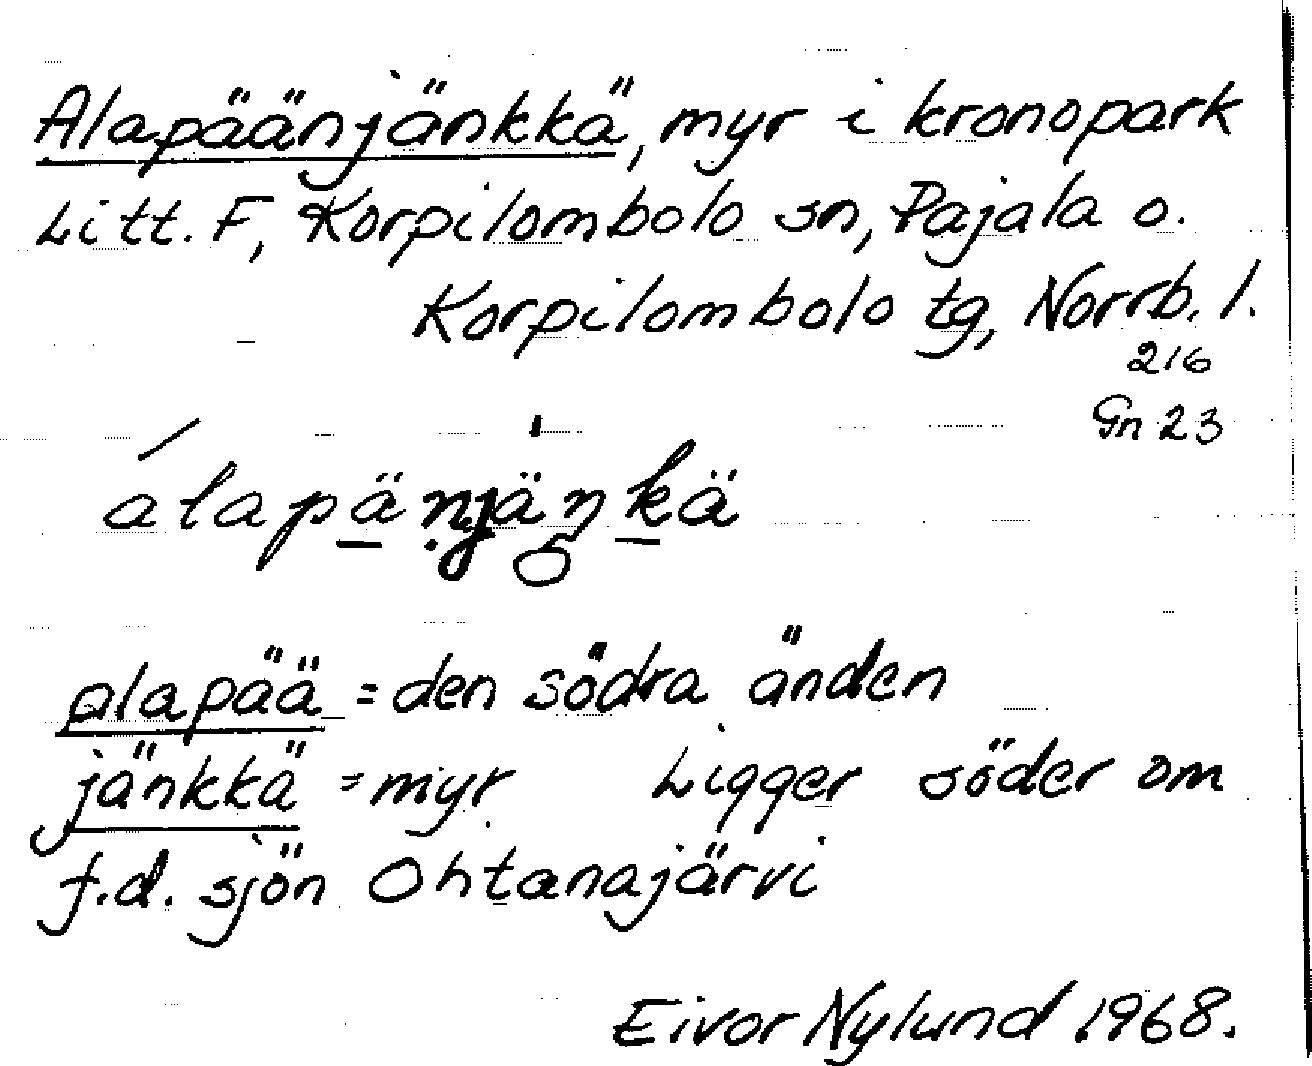 Alapäänjänkkä, myr i kronopark
Litt. F, Korpilombolo sn, Pajala o.
Korpilombolo tg, Norrb. l.
216
Gn 23
álapänjäŋkä
alapää = den södra änden
jänkkä = myr Ligger söder om
f.d. sjön Ohtanajärvi
Eivor Nylund 1968.